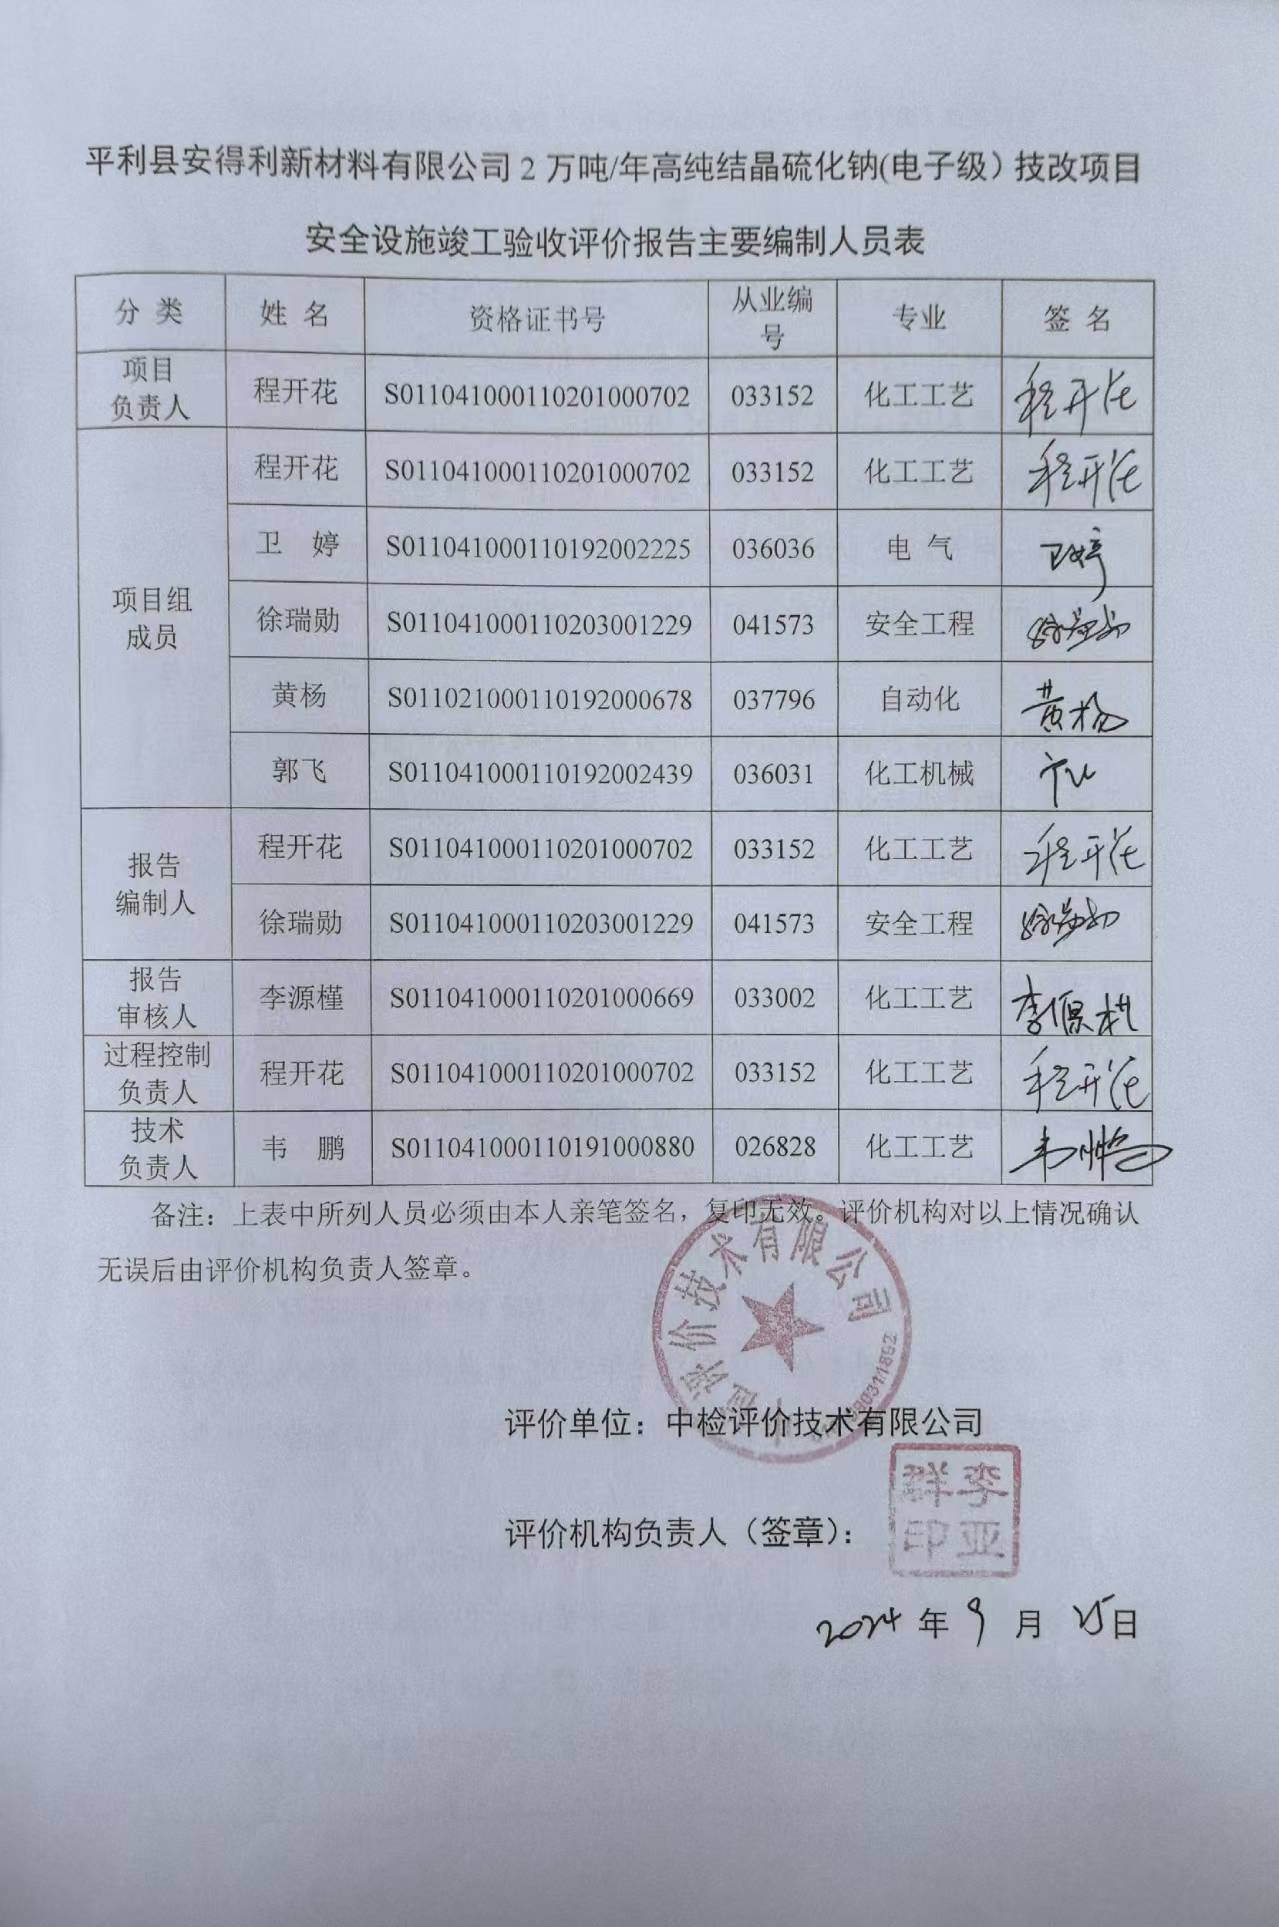 平利县安得利新材料有限公司2万吨/年高纯结晶硫化钠(电子级）技改项目
安全设施竣工验收评价报告主要编制人员表
分 类 姓 名 资格证书号 从业编号 专业 签 名
项目负责人 程开花 S011041000110201000702 033152 化工工艺 程开花
项目组成员 程开花 S011041000110201000702 033152 化工工艺 程开花
卫 婷 S011041000110192002225 036036 电 气 卫婷
徐瑞勋 S011041000110203001229 041573 安全工程 徐瑞勋
黄杨 S011021000110192000678 037796 自动化 黄杨
郭飞 S011041000110192002439 036031 化工机械
报告编制人 程开花 S011041000110201000702 033152 化工工艺 程开花
徐瑞勋 S011041000110203001229 041573 安全工程 徐瑞勋
报告审核人 李源槿 S011041000110201000669 033002 化工工艺
过程控制负责人 程开花 S011041000110201000702 033152 化工工艺 程开花
技术负责人 韦 鹏 S011041000110191000880 026828 化工工艺 韦鹏
备注：上表中所列人员必须由本人亲笔签名，复印无效。评价机构对以上情况确认
无误后由评价机构负责人签章。
中检评价技术有限公司
评价单位：中检评价技术有限公司
评价机构负责人（签章）：
李亚群印
2024 年 9 月 25日